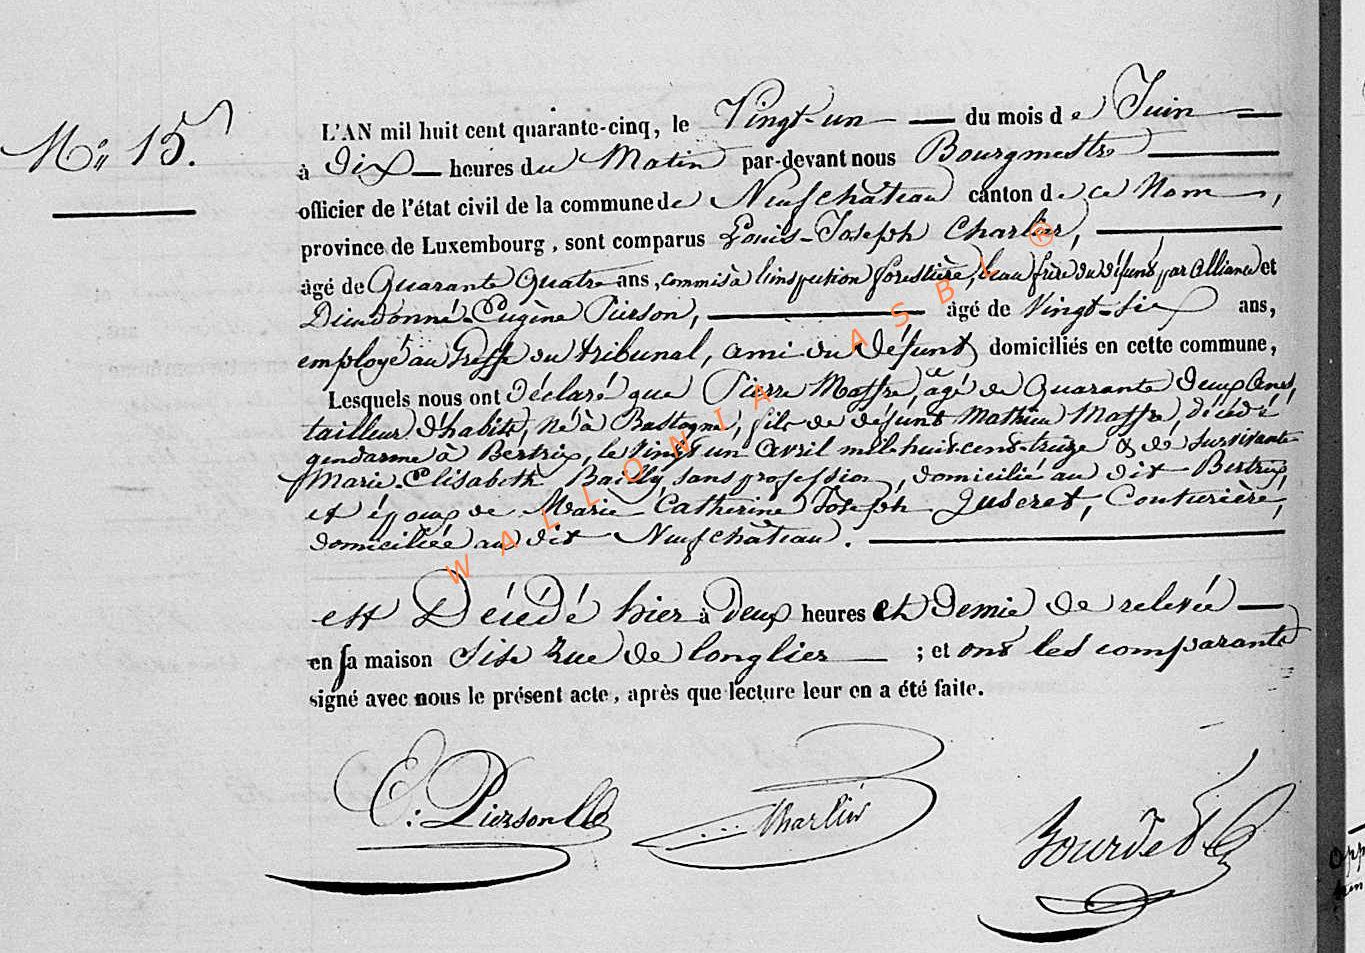 N° 15.
L'AN mil huit cent quarante-cinq, le Vingt-un du mois de Juin
à Dix heures du Matin par-devant nous Bourgmestre
officier de l'état civil de la commune de Neufchâteau canton de ce Nom,
province de Luxembourg, sont comparus Louis-Joseph Charlier,
âgé de Quarante Quatre ans, commis à l'inspection forestière, beau frère du défunt par alliance et
Dieudonné Eugène Pierson, âgé de Vingt-six ans,
employé au Greffe du tribunal, ami du Défunt domiciliés en cette commune,
Lesquels nous ont Déclaré que Pierre Maffre, âgé de Quarante Deux Ans,
tailleur d'habits, Né à Bastogne, fils de défunt Mathieu Maffre, décédé
gendarme à Bertrix, le Vingt un avril mil-huit-cent-treize & de survivante
Marie Elisabeth Bailly sans profession, domiciliée au dit Bertrix,
et époux de Marie Catherine Joseph Juseret, Couturière,
domiciliée au dit Neufchâteau.
est Décédé hier à Deux heures et Demie de relevée
en sa maison Sise Rue de longlier ; et ont les comparants
signé avec nous le présent acte, après que lecture leur en a été faite.
E. Pierson
Charlier
WALLONIA ASBL ®